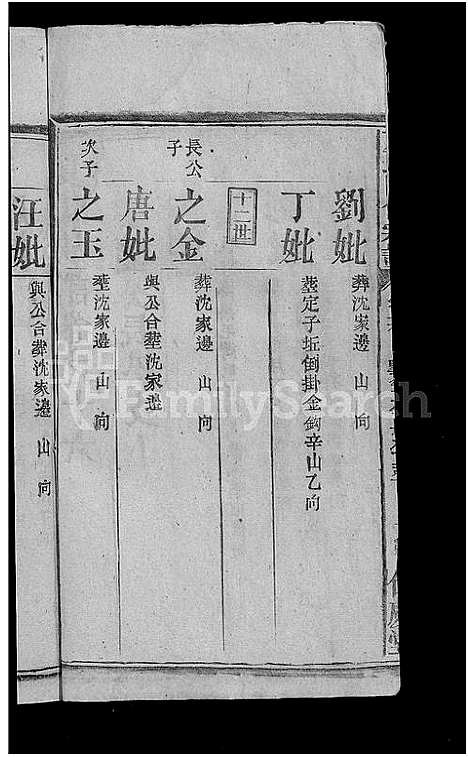 劉妣
葬沈家邊 山 向
丁妣
塟定子坵倒掛金鈎辛山乙向
十二世
長公子
之金
葬沈家邊 山 向
唐妣
與公合塟沈家邊
次子
之玉
塟沈家邊 山 向
汪妣
與公合葬沈家邊 山 向
FamilySearch